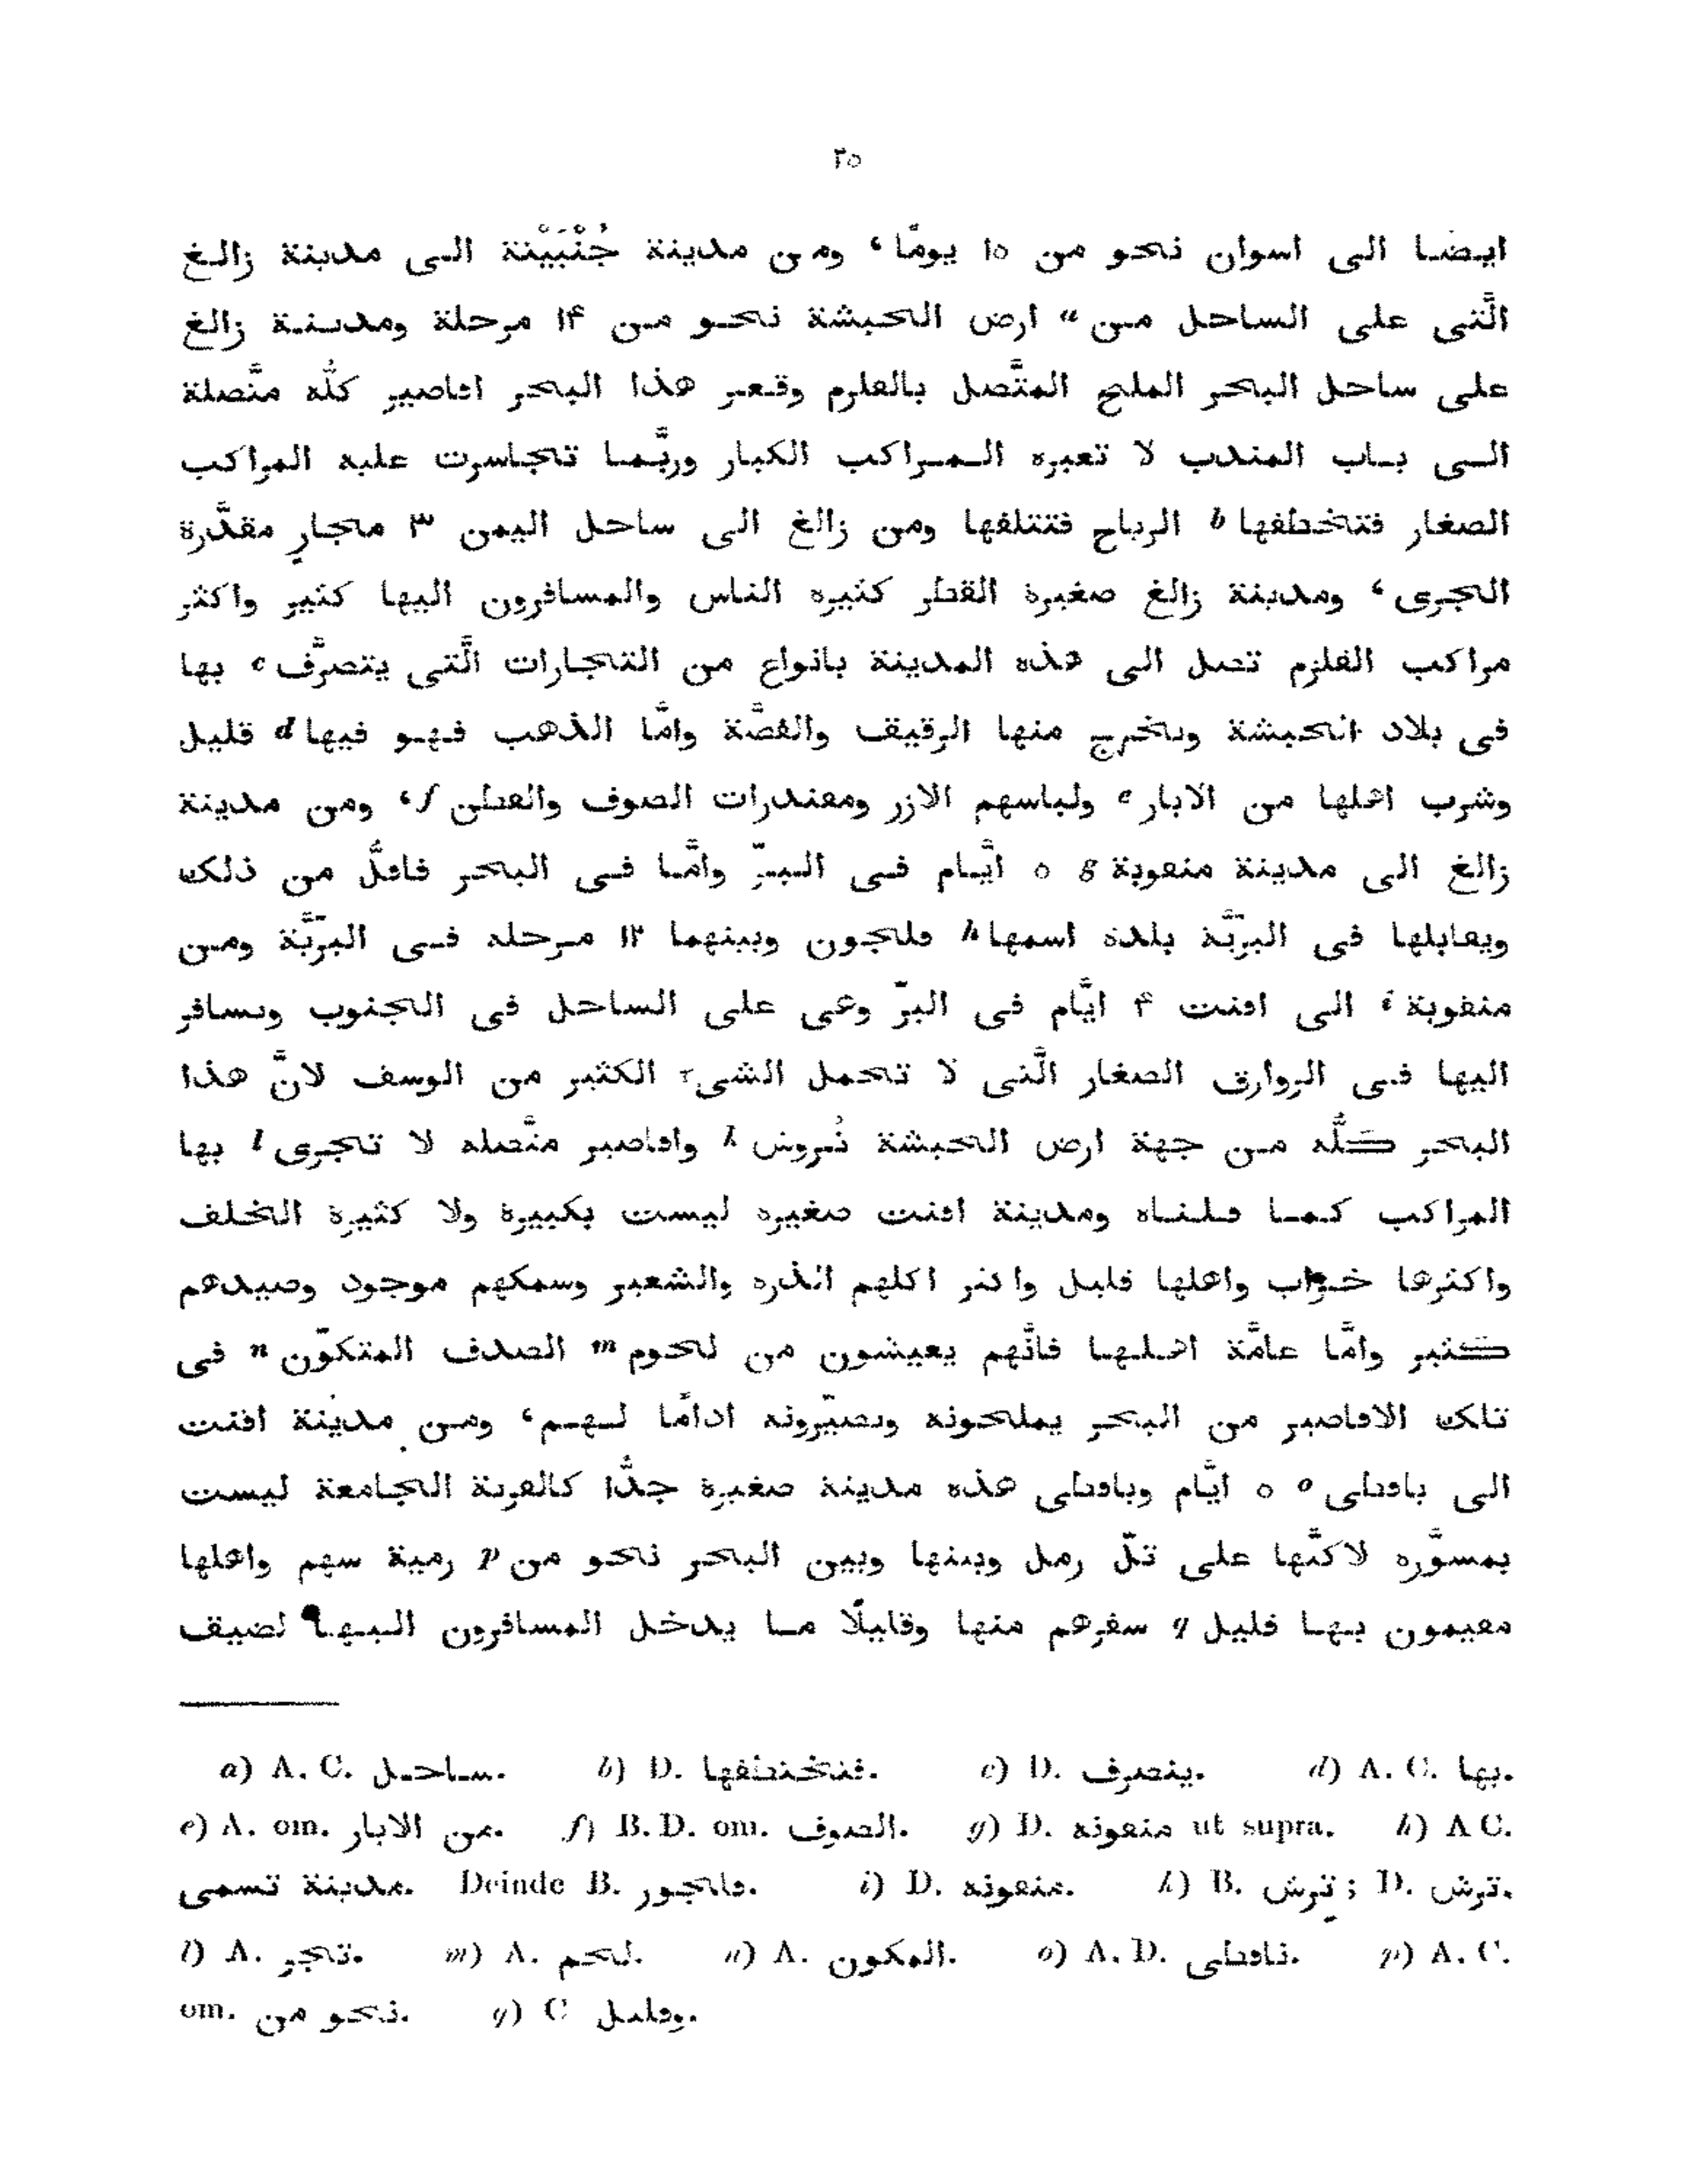 ٢٥
ايضا الى اسوان نحو من ١٥ يومًا، ومن مدينة جُنْبَيْتة الى مدينة زالغ
الَّتى على الساحل من a ارض الحبشة نحو من ١۴ مرحلة ومدينة زالغ
على ساحل البحر الملح المتَّصل بالقلزم وقعر هذا البحر اقاصير كلُّه متَّصلة
الى باب المندب لا تعبره المراكب الكبار وربَّما تجاسرت عليه المراكب
الصغار فتتخطفها b الرياح فتتلفها ومن زالغ الى ساحل اليمن ٣ مجارٍ مقدَّرة
الجرى، ومدينة زالغ صغيرة القطر كثيرة الناس والمسافرون اليها كثير واكثر
مراكب القلزم تصل الى هذه المدينة بانواع من التجارات الَّتى يتصرَّف c بها
فى بلاد الحبشة ويخرج منها الرقيق والفضَّة وامَّا الذهب فهو فيها d قليل
وشرب اهلها من الابار e ولباسهم الازر ومقندرات الصوف والقطن f، ومن مدينة
زالغ الى مدينة منقوبة g ٥ ايَّام فى البرّ وامَّا فى البحر فاقلُّ من ذلك
ويقابلها فى البرّيَّة بلدة اسمها h قلجون وبينهما ١٢ مرحلة فى البرّيَّة ومن
منقوبة i الى اقنت ۴ ايَّام فى البرّ وهى على الساحل فى الجنوب ويسافر
اليها فى الزوارق الصغار الَّتى لا تحمل الشىء الكثير من الوسق لانَّ هذا
البحر كلُّه من جهة ارض الحبشة تُروش k واقاصير متَّصلة لا تجرى l بها
المراكب كما قلناه ومدينة اقنت صغيرة ليست بكبيرة ولا كثيرة الخلق
واكثرها خراب واهلها قليل واكثر اكلهم الذرة والشعير وسمكهم موجود وصيدهم
كثير وامَّا عامَّة اهلها فانَّهم يعيشون من لحوم m الصدف المتكوّن n فى
تلك الاقاصير من البحر يملحونه ويصيّرونه ادامًا لهم، ومن مدينة اقنت
الى باقطى o ٥ ايَّام وباقطى هذه مدينة صغيرة جدًّا كالقرية الجامعة ليست
بمسوَّرة لاكنَّها على تلّ رمل وبينها وبين البحر نحو من p رمية سهم واهلها
مقيمون بها قليل q سفرهم منها وقليلًا ما يدخل المسافرون اليها لضيق
a) A. C. ساحل. b) D. فتختطفها. c) D. ينصرف. d) A. C. بها.
e) A. om. من الابار. f) B. D. om. الصوف. g) D. منقونه ut supra. h) A C.
مدينة تسمى. Deinde B. قلجور. i) D. منقونه. k) B. تِرش; D. ترش.
l) A. تجر. m) A. لحم. n) A. المكون. o) A. D. ناقطى. p) A. C.
om. نحو من. q) C وقليل.